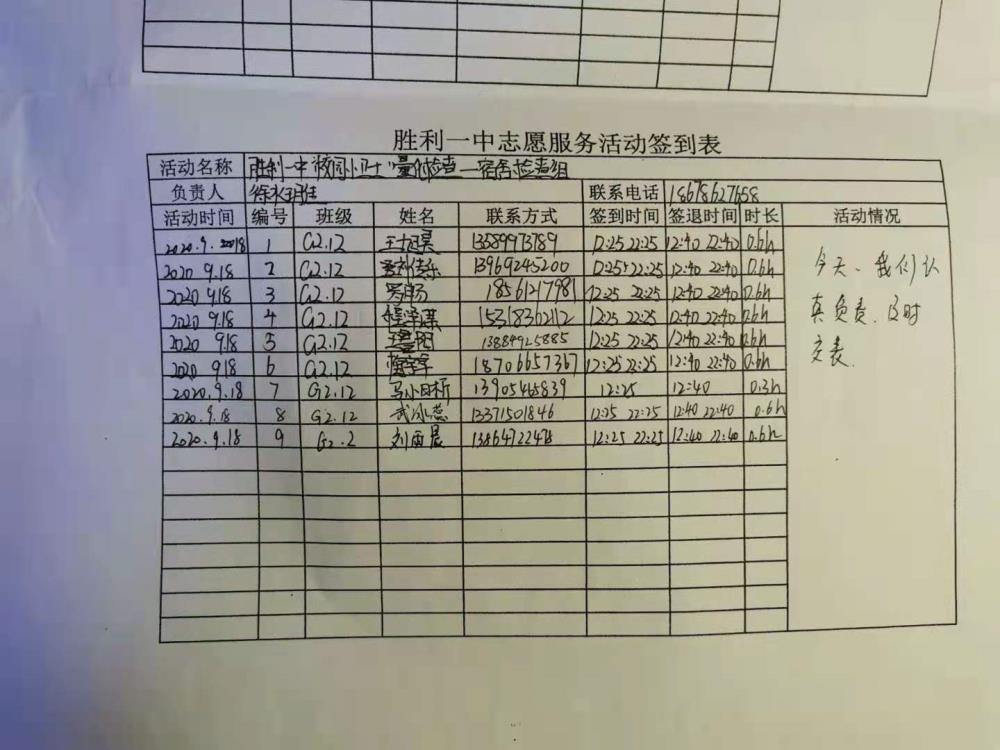 胜利一中志愿服务活动签到表
活动名称 胜利一中"校园小卫士"量化检查—宿舍检查组
负责人 联系电话 18678627658
活动时间 编号 班级 姓名 联系方式 签到时间 签退时间 时长 活动情况
2020.9.18 1 G2.12 13589973789 12:25 22:25 12:40 22:40 0.6h
2020 9.18 2 G2.12 13969245200 12:25 22:25 12:40 22:40 0.6h
2020 9.18 3 G2.12 18561217981 12:25 22:25 12:40 22:40 0.6h
2020 9.18 4 G2.12 15318362112 12:25 22:25 12:40 22:40 0.6h
2020 9.18 5 G2.12 13884925885 12:25 22:25 12:40 22:40 0.6h
2020 9.18 6 G2.12 18706657367 12:25 22:25 12:40 22:40 0.6h
2020.9.18 7 G2.12 13905465839 12:25 12:40 0.3h
2020.9.18 8 G2.12 武冰蕊 13371501846 12:25 22:25 12:40 22:40 0.6h
2020.9.18 9 G2.2 刘雨晨 12:25 22:25 12:40 22:40 0.6h
今天、我们认
真负责、及时
交表.